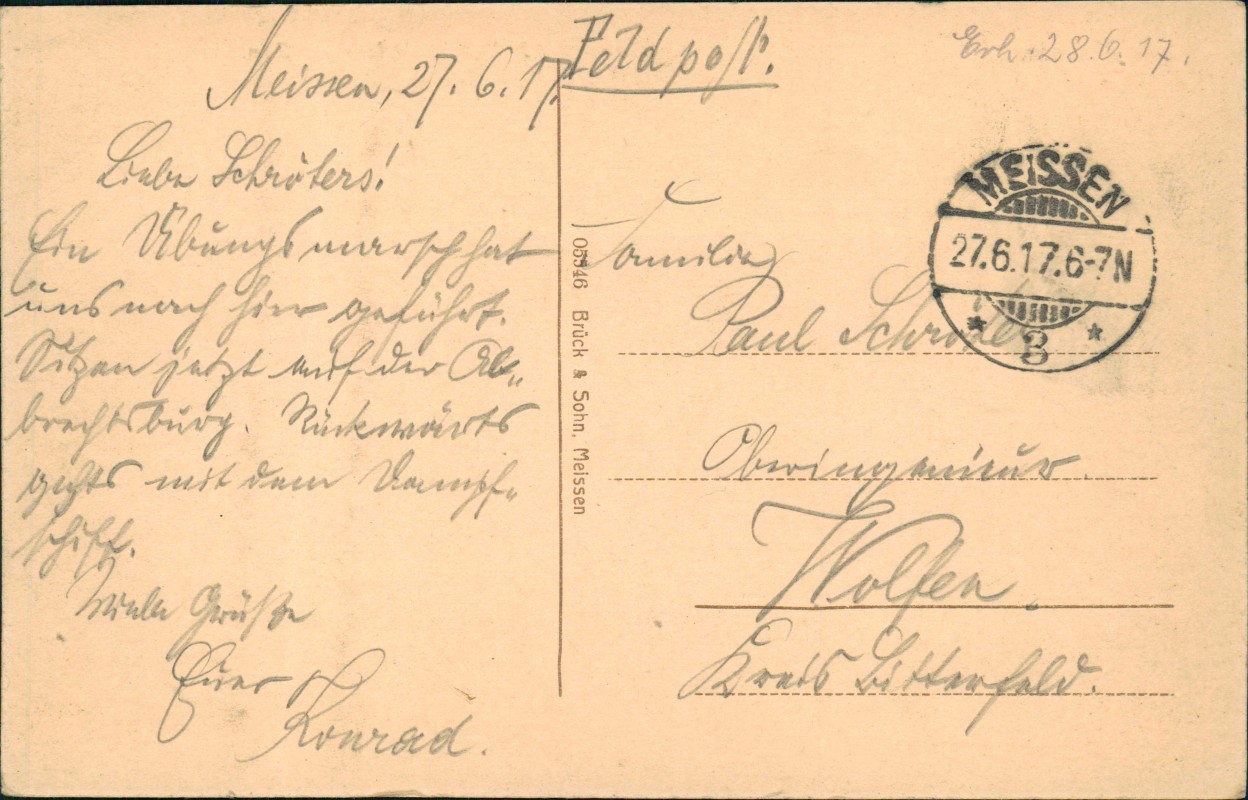 Meissen, 27. 6. 17.
Liebe Schröters!
Ein Übungsmarsch hat
uns nach hier geführt.
Sitzen jetzt auf der Al-
brechtsburg. Rückwärts
gehts mit dem Dampf-
schiff.
Viele Grüße
Euer
Konrad.
05946 Brück & Sohn, Meissen
Feldpost.
Erh. 28.6.17.
MEISSEN
27.6.17.6-7N
* 3 *
Familie
Paul Schröter
Oberingenieur.
Wolfen.
Kreis Bitterfeld.